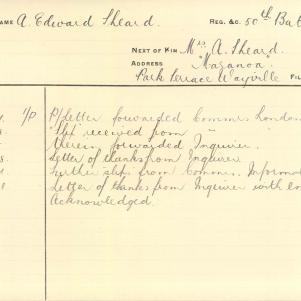 NAME A. Edward Sheard. REG. &C. 50th Bat
NEXT OF KIN Mrs A. Sheard.
ADDRESS "Mazanoa"
Park Terrace Wayville FIL
1/P P/Letter forwarded Comms. London
Slip received from "
Therein forwarded Inquirer.
Letter of thanks from Inquirer
Further slips from Comms. Informat
Letter of thanks from Inquirer with en
Acknowledged.